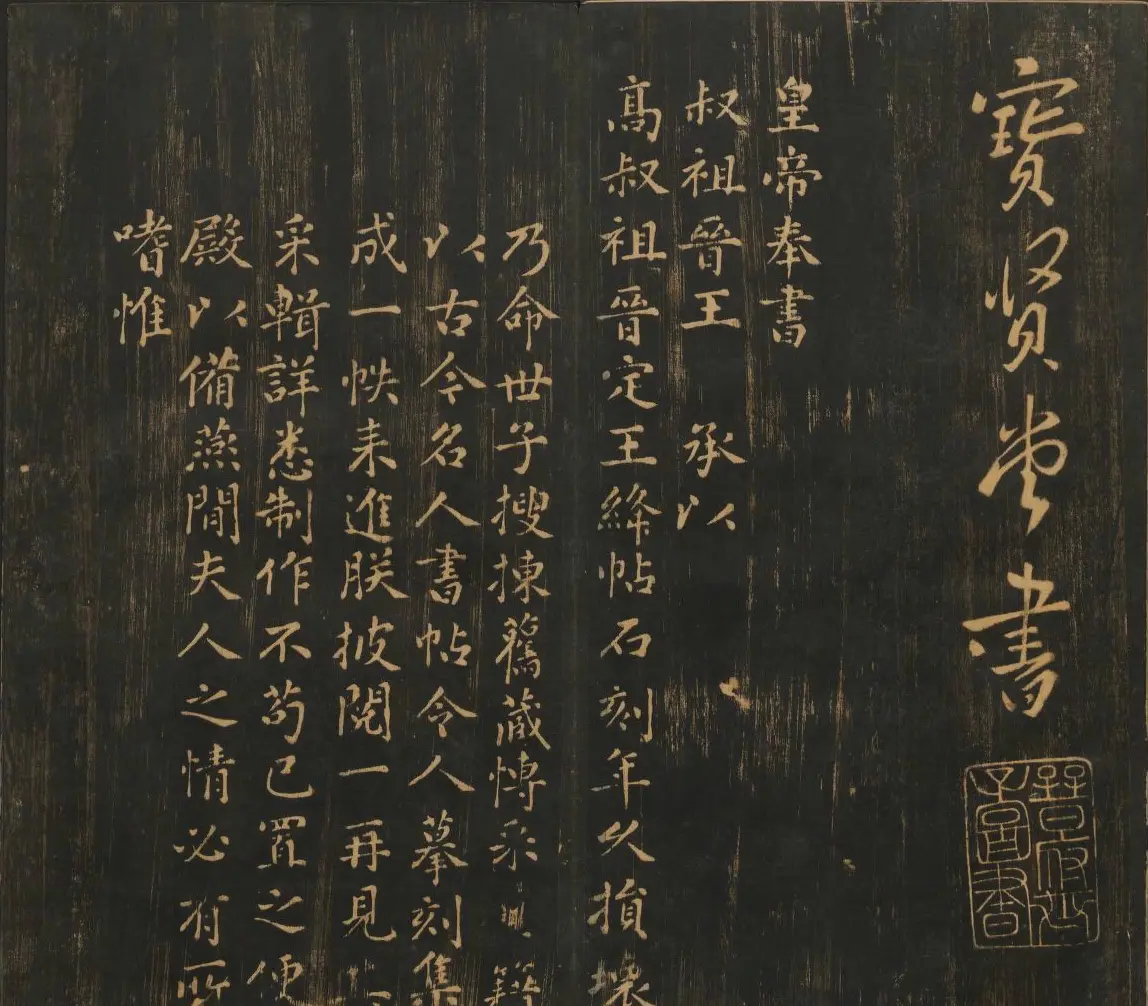 寶賢堂書
皇帝奉書
叔祖晉王 承以
高叔祖晉定王絳帖石刻年久損壞
乃命世子搜揀舊藏博采 籍
以古今名人書帖令人摹刻集
成一帙来進朕披閱一再見
采輯詳悉制作不苟已置之便
殿以備燕閒夫人之情必有所
嗜惟